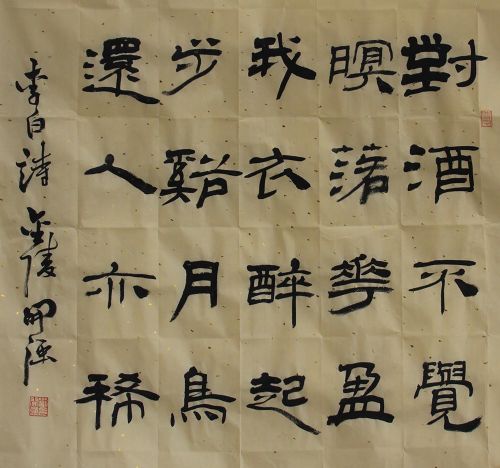 對酒不覺
暝落華盈
我衣醉起
步谿月鳥
還人亦稀
李白詩 金陵